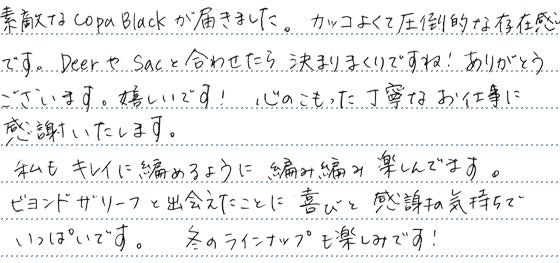 素敵なcopa Blackが届きました。カッコよくて圧倒的な存在感
です。Deerや Sacと合わせたら 決まりまくりですね！ありがとう
ございます。嬉しいです！ 心のこもった丁寧なお仕事に
感謝いたします。
私も キレイに編めるように 編み編み 楽しんでます。
ビヨンドザリーフと出会えたことに 喜びと 感謝の気持ちで
いっぱいです。 冬のラインナップも楽しみです！